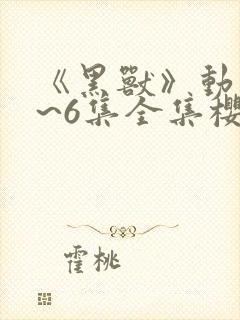 《黑獸》動
~6集全集櫻
霍桃